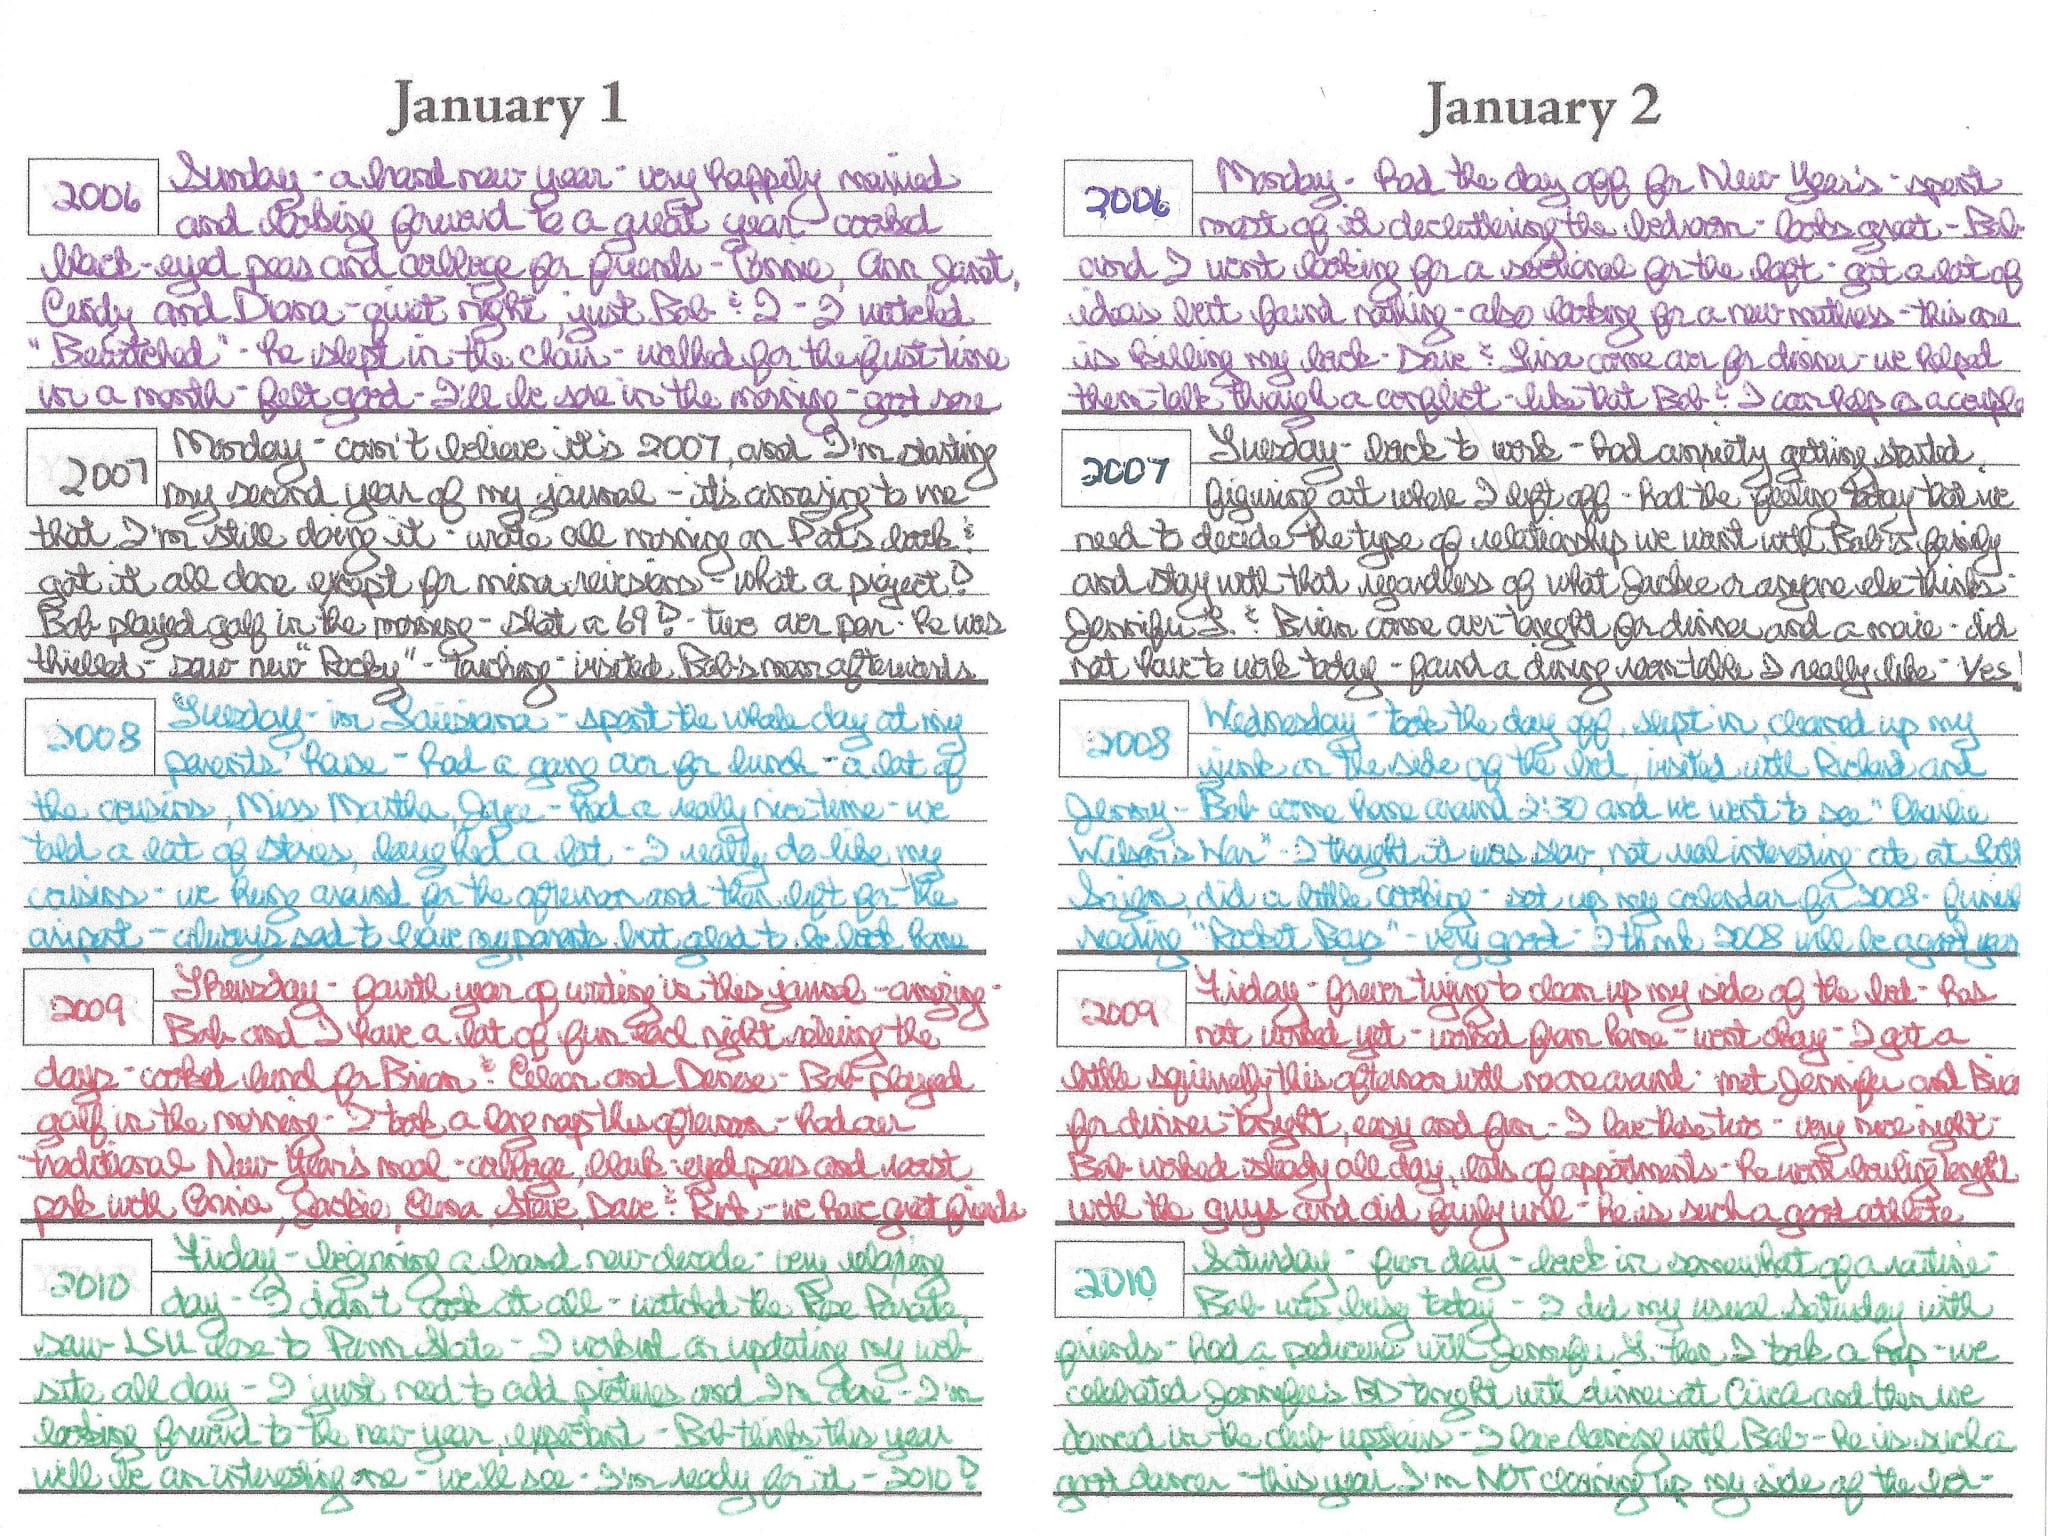 January 1
2006
Sunday - a brand new year - very happily married
and looking forward to a great year - cooked
black-eyed peas and cabbage for friends - Connie, Ann, Janet,
Cindy and Diana - quiet night, just Bob & I - I watched
"Bewitched" - he slept in the chair - walked for the first time
in a month - felt good - I'll be sore in the morning - good sore
2007
Monday - can't believe it's 2007, and I'm starting
my second year of my journal - it's amazing to me
that I'm still doing it - wrote all morning on Pat's book &
got it all done except for minor revisions - what a project!
Bob played golf in the morning - shot a 69! - two over par - he was
thrilled - saw new "Rocky" - touching - visited Bob's mom afterwards
2008
Tuesday - in Louisiana - spent the whole day at my
parents' house - had a gang over for lunch - a lot of
the cousins, Miss Martha, Joyce - had a really nice time - we
told a lot of stories, laughed a lot - I really do like my
cousins - we hung around for the afternoon and then left for the
airport - always sad to leave my parents but glad to be back home
2009
Thursday - fourth year of writing in this journal - amazing -
Bob and I have a lot of fun each night reliving the
days - cooked lunch for Brian & Eileen and Denise - Bob played
golf in the morning - I took a long nap this afternoon - had our
traditional New Year's meal - cabbage, black-eyed peas and roast
pork with Connie, Jackie, Elena, Steve, Dave & - we have great friends
2010
Friday - beginning a brand new decade - very relaxing
day - I didn't cook at all - watched the Rose Parade,
saw LSU lose to Penn State - I worked on updating my web
site all day - I just need to add pictures and I'm done - I'm
looking forward to the new year, expectant - Bob thinks this year
will be an interesting one - we'll see - I'm ready for it - 2010!
January 2
2006
Monday - had the day off for New Year's - spent
most of it decluttering the bedroom - looks great - Bob
and I went looking for a sectional for the loft - got a lot of
ideas but found nothing - also looking for a new mattress - this one
is killing my back - Dave & Lisa came over for dinner - we helped
them talk through a conflict - like that Bob & I can help as a couple
2007
Tuesday - back to work - had anxiety getting started,
figuring out where I left off - had the feeling today that we
need to decide the type of relationship we want with Bob's family
and stay with that regardless of what Jackie or anyone else thinks -
Jennifer S. & Brian came over tonight for dinner and a movie - did
not have to work today - found a dining room table I really like - Yes!
2008
Wednesday - took the day off, slept in, cleaned up my
junk on the side of the bed, visited with Richard and
Jenny - Bob came home around 2:30 and we went to see "Charlie
Wilson's War" - I thought it was slow, not real interesting - ate at Little
Saigon, did a little cooking - set up my calendar for 2008 - finished
reading "Rocket Boys" - very good - I think 2008 will be a good year
2009
Friday - forever trying to clean up my side of the bed - has
not worked yet - worked from home - went okay - I got a
little squirrelly this afternoon with no one around - met Jennifer and Brian
for dinner tonight, easy and fun - I love these two - very nice night -
Bob worked steady all day, lots of appointments - he went bowling tonight
with the guys and did fairly well - he is such a good athlete
2010
Saturday - fun day - back in somewhat of a routine -
Bob was busy today - I did my usual Saturday with
friends - had a pedicure with Jennifer S. then I took a nap - we
celebrated Jennifer's BD tonight with dinner at Circa and then we
danced in the club upstairs - I love dancing with Bob - he is such a
good dancer - this year I'm NOT cleaning up my side of the bed -